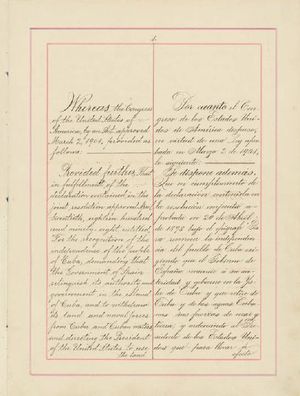 4.
Whereas the Congress
of the United States of
America, by an Act approved
March 2, 1901, provided as
follows:
Provided further, That
in fulfillment of the
declaration contained in the
joint resolution approved
twentieth, eighteen hundred
and ninety-eight, entitled,
For the recognition of the
independence of the people
of Cuba, demanding that
the Government of Spain
relinquish its authority and
government in the island
of Cuba, and to withdraw
its land and naval forces
from Cuba and Cuban waters
and directing the President
of the United States to use
the land
Por cuanto el Con-
greso de los Estados Uni-
dos de América dispuso,
en virtud de una Ley apro-
bada en Marzo 2 de 1901,
lo siguiente:
Se dispone además,
Que en cumplimiento de
la declaración contenida en
la resolución conjunta a-
probada en 20 de Abril
de 1898 bajo el epígrafe Pa-
ra reconocer la independen-
cia del pueblo de Cuba exi-
giendo que el Gobierno de
España renuncie a su au-
toridad y gobierno en la Is-
la de Cuba y que retire de
Cuba y de las aguas Cuba-
nas sus fuerzas de mar y
tierra y ordenando al Pre-
sidente de los Estados Uni-
dos que para llevar á
efecto